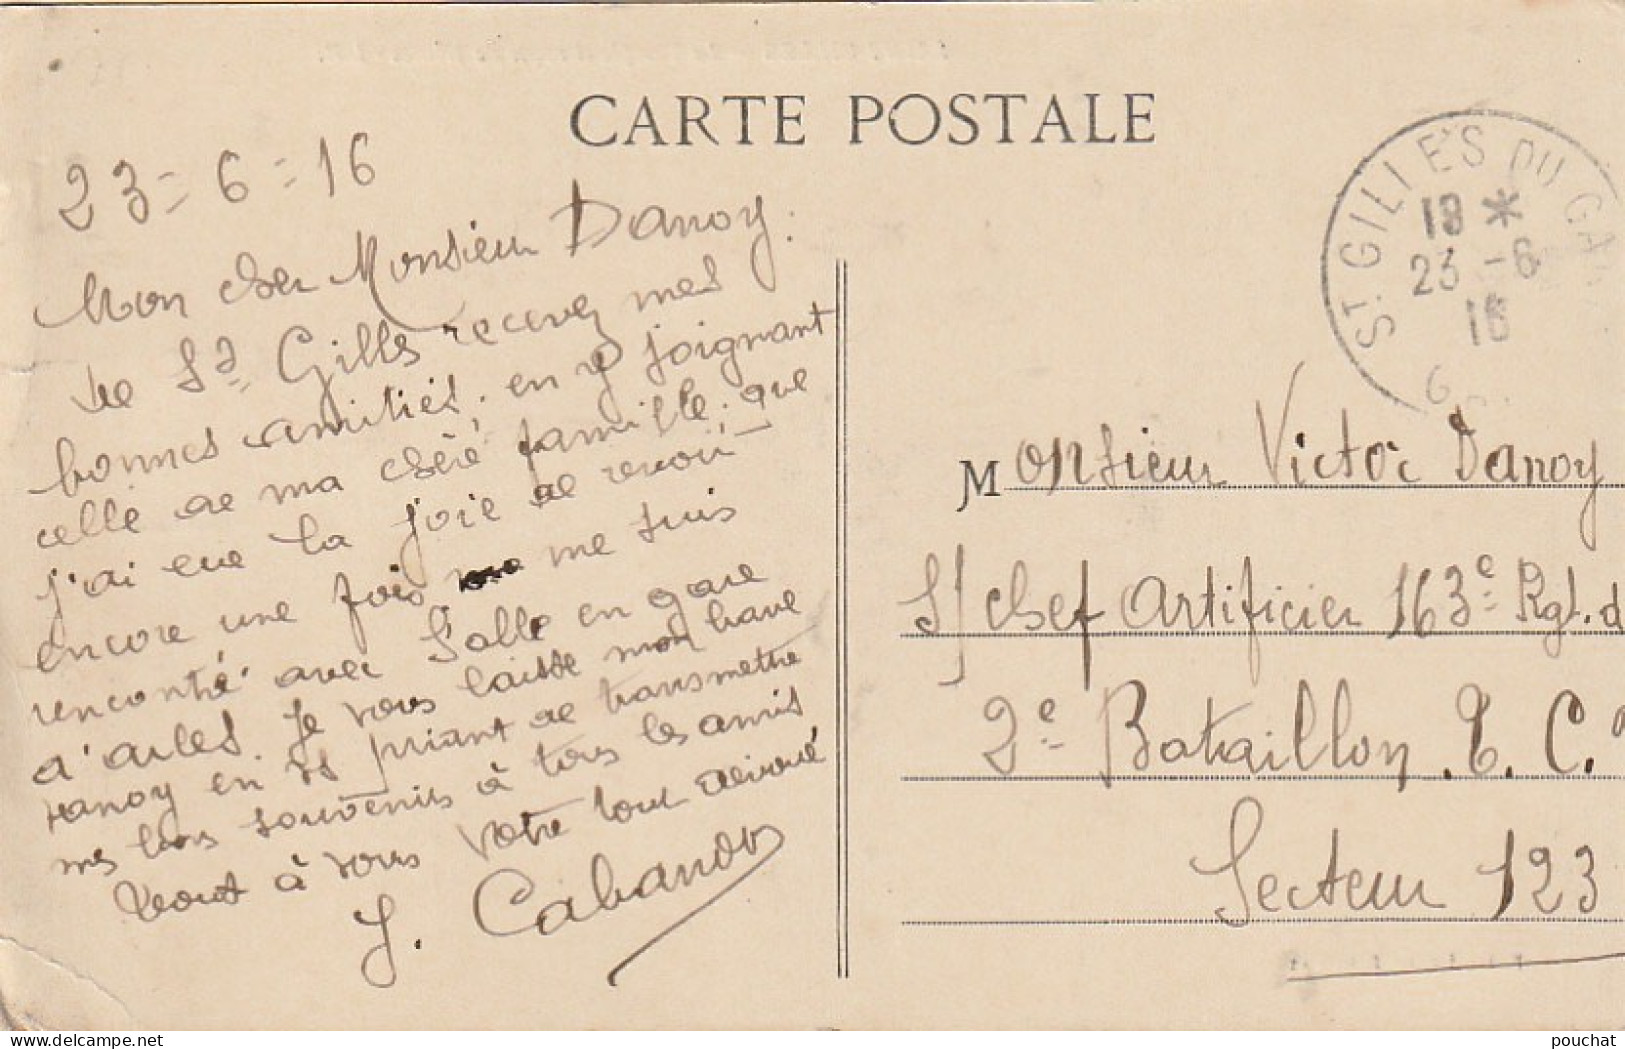 CARTE POSTALE
23=6=16
Mon cher Monsieur Danoy.
de St Gilles recevez mes
bonnes amitiés. en y joignant
celle de ma chère famille. que
j'ai eue la joie de revoir
encore une fois me suis
rencontré avec Salle en gare
d'arles. Je vous laisse mon brave
Danoy en vs priant de transmettre
mes bons souvenirs à tous les amis
tout à vous Votre tout dévoué
J. Cabanov
ST. GILLES DU GA
18 *
23 - 6
16
Monsieur Victor Danoy
S/chef Artificier 163e Rgt. d
2e Bataillon. T. C.
Secteur 123
pouchat delcampe.net